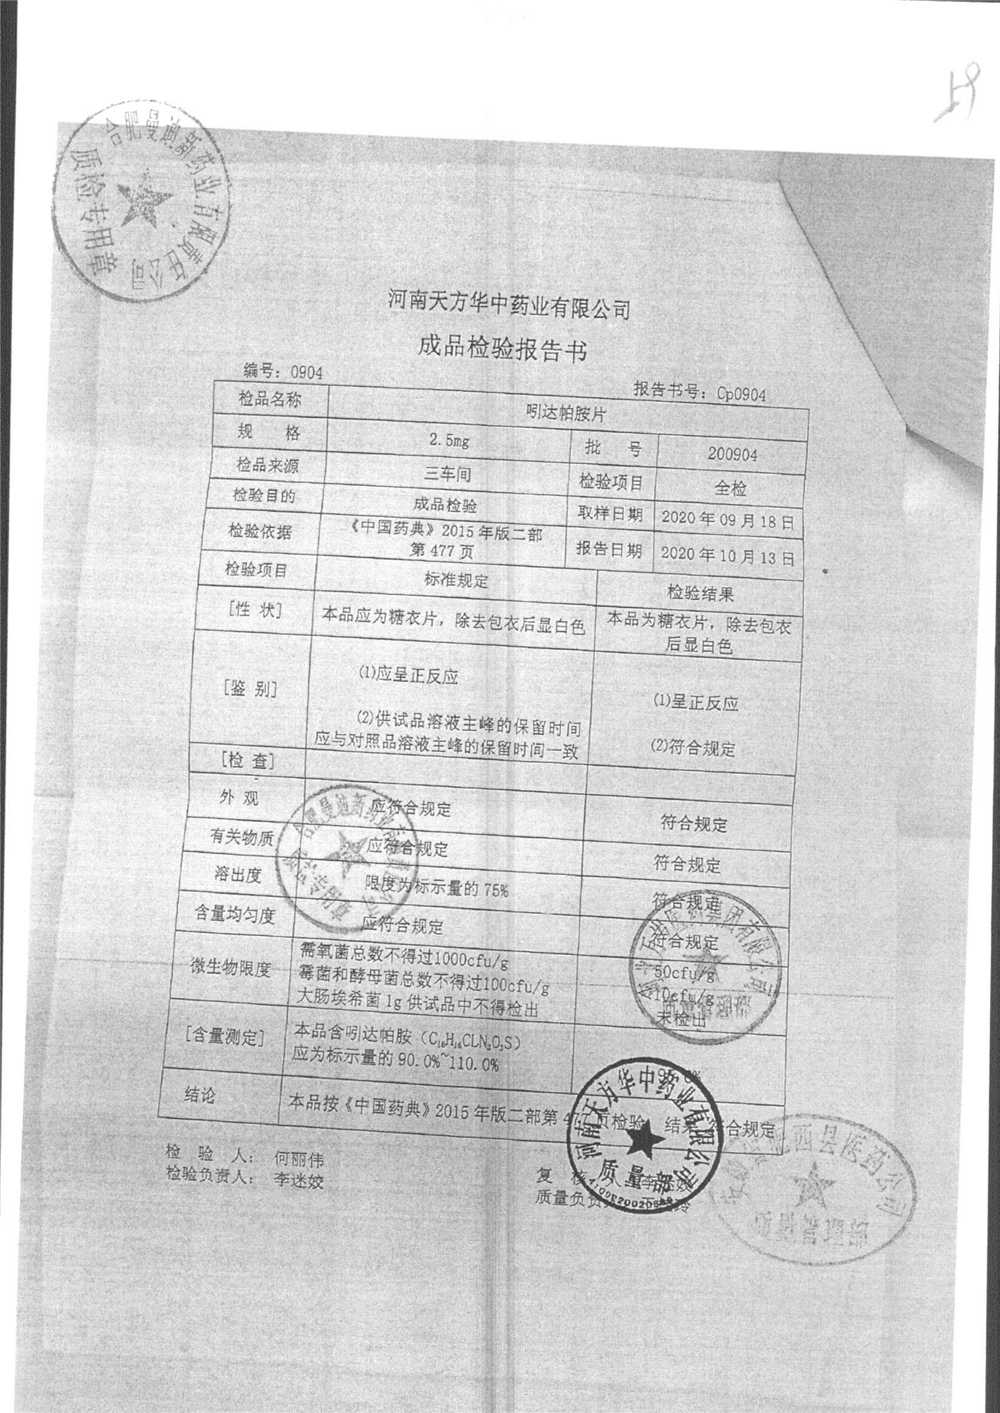 合肥曼迪新药业有限责任公司
质检专用章
河南天方华中药业有限公司
成品检验报告书
编号：0904
报告书号：Cp0904
检品名称 吲达帕胺片
规 格 2.5mg 批 号 200904
检品来源 三车间 检验项目 全检
检验目的 成品检验 取样日期 2020年09月18日
检验依据 《中国药典》2015年版二部
第477页 报告日期 2020年10月13日
检验项目 标准规定 检验结果
[性 状] 本品应为糖衣片，除去包衣后显白色 本品为糖衣片，除去包衣
后显白色
[鉴 别] (1)应呈正反应 (1)呈正反应
(2)供试品溶液主峰的保留时间
应与对照品溶液主峰的保留时间一致 (2)符合规定
[检 查]
外 观 应符合规定 符合规定
有关物质 应符合规定 符合规定
溶出度 限度为标示量的75% 符合规定
含量均匀度 应符合规定 符合规定
微生物限度 需氧菌总数不得过1000cfu/g 50cfu/g
霉菌和酵母菌总数不得过100cfu/g 10cfu/g
大肠埃希菌1g供试品中不得检出 未检出
[含量测定] 本品含吲达帕胺（C₁₆H₁₆CLN₃O₃S）
应为标示量的90.0%~110.0%
结论 本品按《中国药典》2015年版二部第477页检验，结果符合规定
检 验 人： 何丽伟
检验负责人： 李迷姣
复 核 人
质量负责
河南天方华中药业有限公司
质量部
西县医药公司
质量管理部